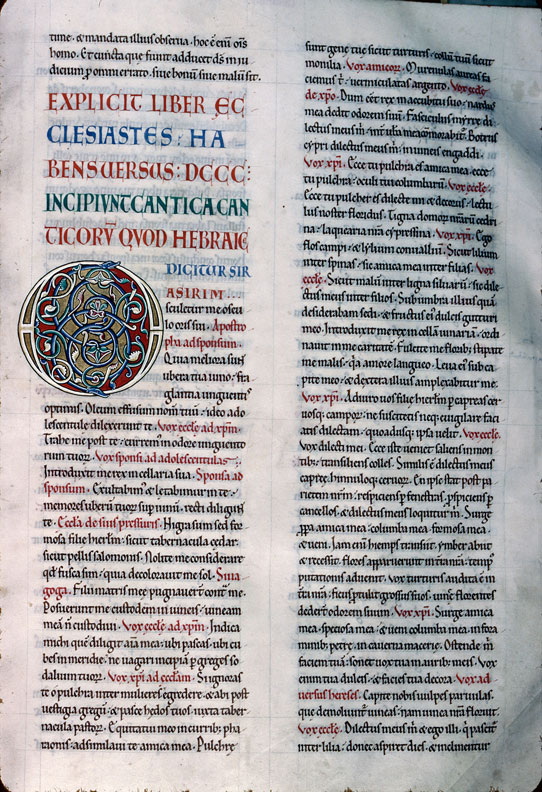 time · & mandata illius obserua · hoc ÷ eni͂ ois
homo · Et cuncta que fiunt adducet dš in iu
dicium p omni errato · siue bonu͂ siue malu͂ sit ·
EXPLICIT LIBER EC
CLESIASTES : HA
BENS UERSUS : DCCC :
INCIPIUNT CANTICA CAN
TICORU͂ QUOD HEBRAIC̨
DICITUR SIR
ASIRIM ..
Osculetur me oscu
lo oris sui · Apostro
pha ad sponsum ·
Quia meliora sunt
ubera tua uino · fra
glantia unguentis
optimis · Oleum effusum nom̅ tuu͂ · ideo ado
lescentule dilexerunt te · Vox eccłe ad xp̅m ·
Trahe me post te · curremꝰ in odore unguento
rum tuorꝝ · Vox sponsi ad adolescentulas ·
Introduxit me rex in cellaria sua · Sponsa ad
sponsum · Exultabimꝰ & letabimur in te ·
memores uberu͂ tuorꝝ sup uinu͂ · recti diligunt
te · Eccła de suis pressuris · Nigra sum sed for
mosa filię hierłm · sicut tabernacula cedar ·
sicut pellis salomonis · Nolite me considerare
qđ fusca sim · quia decolorauit me sol · Sina
goga · Filii matris meę pugnauer̅t cont̅ me ·
Posuerunt me custodem in uineis · uineam
mea͂ n̅ custodiui · Vox eccłe ad xp̅m · Indica
michi que͂ diligit aı͂a mea · ubi pascas · ubi cu
bes in meridie · ne uagari incipia͂ p greges so
dalium tuorꝝ · Vox xp̅i ad eccłam · Si ignoras
te o pulchra inter mulieres egredere · & abi post
uestigia gregu͂ · & pasce hędos tuos · iuxta taber
nacula pastorꝝ · Equitatui meo in currib; pha
raonis · adsimilaui te amica mea · Pulchrę
sunt genę tuę sicut turturis · collu͂ tuu͂ sicut
monilia · Vox amicorꝝ · Murenulas aureas fa
ciemus t̅ · uermiculatas argento · Vox eccłe
de xp̅o · Dum e̅et rex in accubitu suo · nardus
mea dedit odorem suu͂ · Fasciculus myrrę di
lectus meus m̅ · int̅ ubera mea co͂morabit̅ · Botrus
cypri dilectus meus m̅ · in uineis engaddi ·
Vox xp̅i · Ecce tu pulchra es amica mea · ecce
tu pulchra · oculi tui columbaru͂ · Vox eccłe ·
Ecce tu pulcher es dilecte mi & decorus · lectu
lus noster floridus · Tigna domorꝝ nr̅arꝝ cedri
na · laquearia nr̅a cypressina · Vox xp̅i · Ego
flos campi · & lylium conualliu͂ · Sicut lilium
inter spinas · sic amica mea inter filias · Vox
eccłe · Sicut malu͂ inter ligna siluaru͂ · sic dile
ctus meus inter filios · Sub umbra illius qua͂
desideraba͂ sedi · & fructus ei dulcis gutturi
meo · Introduxit me rex in cella͂ uinaria͂ · ordi
nauit in me caritate͂ · Fulcite me florib; · stipate
me malis · quia amore langueo · Leua eiꝰ sub ca
pite meo · & dextera illius amplexabitur me ·
Vox xp̅i · Adiuro uos filię hierłm p capreas cer
uosq; camporꝝ · ne suscitetis neq; euigilare faci
atis dilectam · quoadusq; ipsa uelit · Vox eccłe ·
Vox dilecti mei · Ecce iste uenit saliens in mon
tib; · transiliens colles · Similis ÷ dilectus meus
capreę · hinnuloq; ceruorꝝ · En ipse stat post pa
rietem nr̅m · respiciens p fenestras · pspiciens p
cancellos · & dilectus meus loquitur m̅ · Surge
ppera amica mea · columba mea · formosa mea ·
& ueni · Iam eni͂ hiemps transiit · ymber abiit
& recessit · flores apparuerunt in t̅ra nr̅a · tempꝰ
putationis aduenit · Vox turturis audita ÷ in
t̅ra nr̅a · ficus ptulit grossos suos · uineę florentes
deder̅t odorem suum · Vox xp̅i · Surge amica
mea · speciosa mea · & ueni columba mea · in fora
minib; petrę · in cauerna macerię · Ostende m̅
faciem tua͂ · sonet uox tua in aurib; meis · Vox
enim tua dulcis · & facies tua decora · Vox ad
uersus hereses · Capite nobis uulpes paruulas ·
que demoliunt̅ uineas · nam uinea nr̅a floruit ·
Vox eccłe · Dilectus meus m̅ · & ego illi · qi pascit̅
inter lilia · donec aspiret dies · & inclinentur